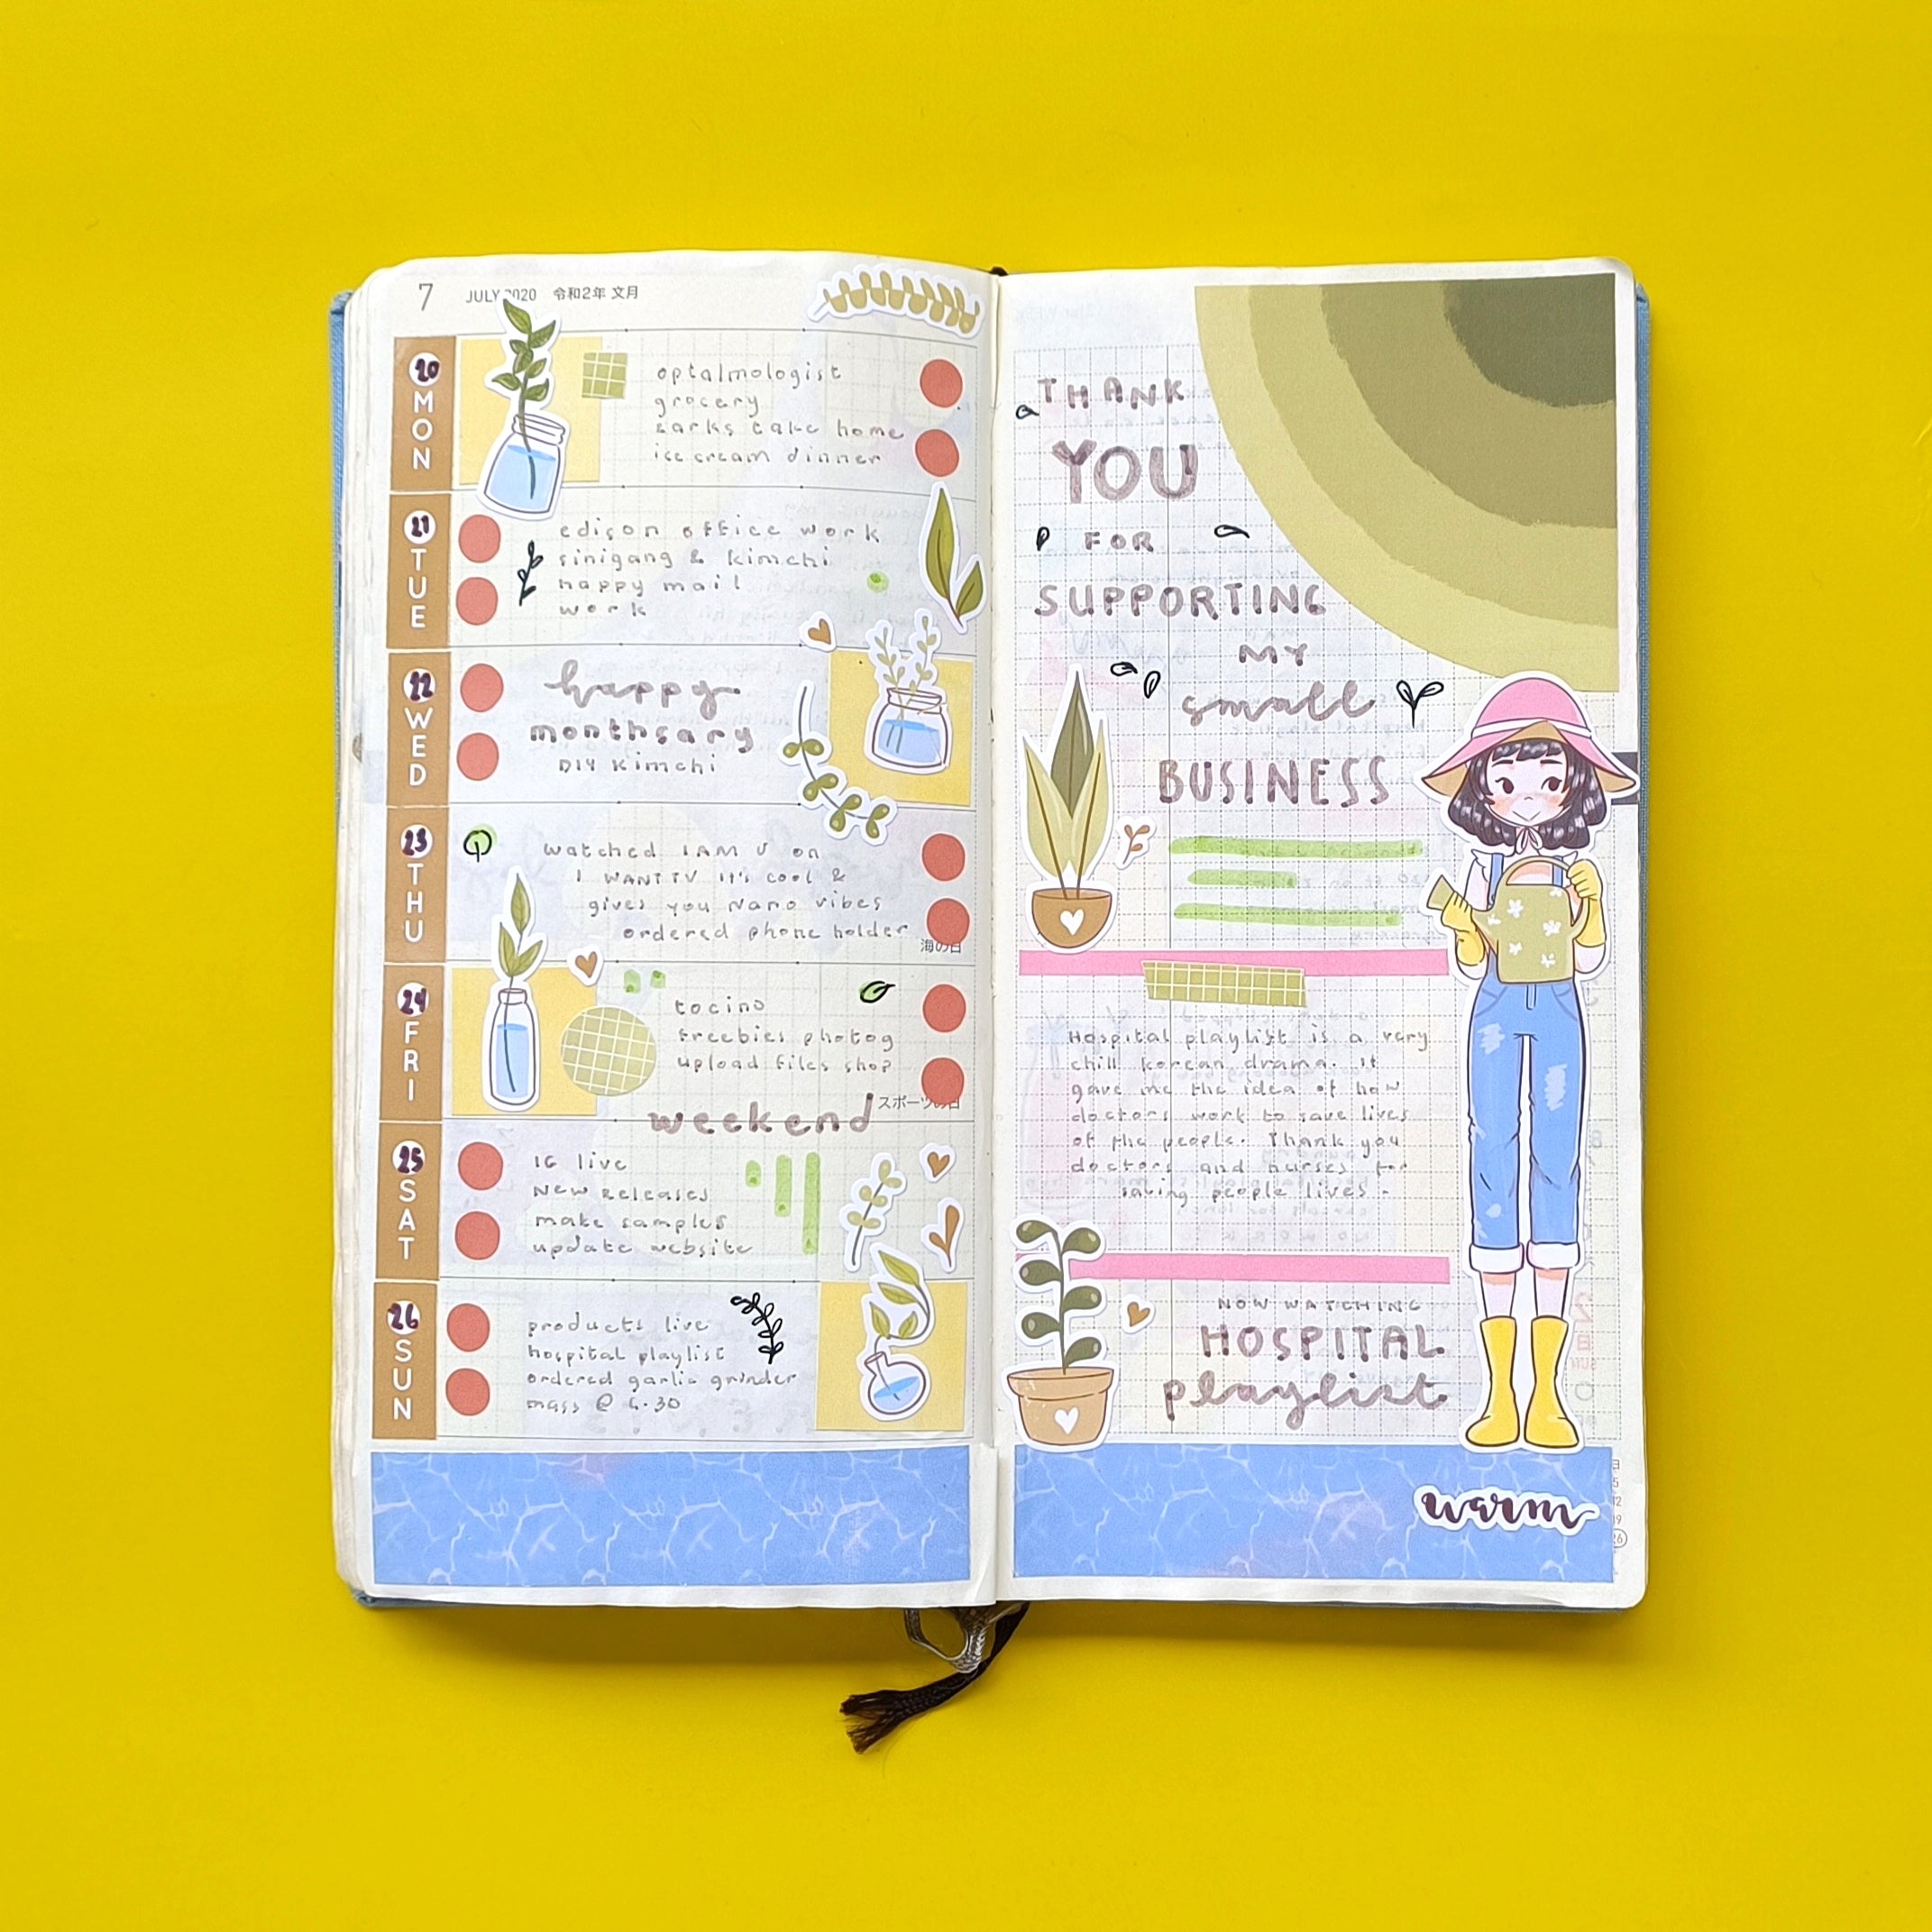 7 JULY 2020 令和2年 文月
20
MON
optalmologist
grocery
sarks cake home
ice cream dinner
21
TUE
edison office work
sinigang & kimchi
happy mail
work
22
WED
happy
monthsary
DIY kimchi
23
THU
watched I AM U on
I WANT TV It's cool &
gives you Nano vibes
ordered phone holder
海の日
24
FRI
tocino
freebies photog
upload files shop
スポーツの日
weekend
25
SAT
IG live
New Releases
make samples
update website
26
SUN
products live
hospital playlist
ordered garlic grinder
mass @ 4.30
THANK
YOU
FOR
SUPPORTING
MY
small
BUSINESS
Hospital playlist is a very
chill korean drama. It
gave me the idea of how
doctors work to save lives
of the people. Thank you
doctors and nurses for
saving people lives.
NOW WATCHING
HOSPITAL
playlist
warm
日
5
12
19
26